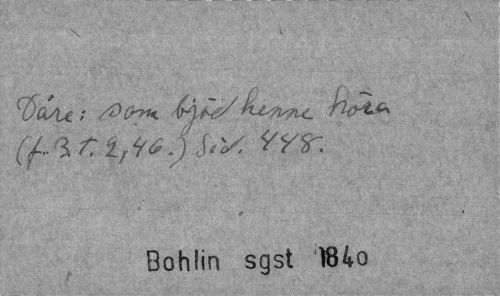 Dåre: som bjöd henne höra
(f. 3. t. 2,46.) Sid. 448.
Bohlin sgst 1840